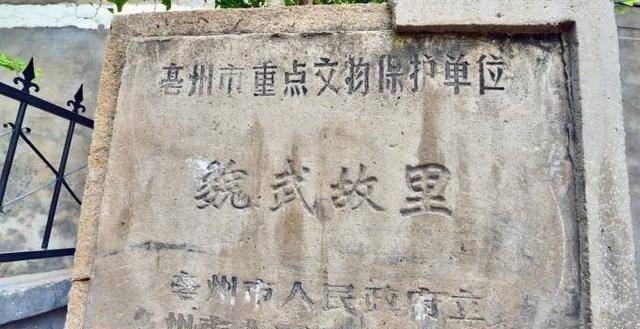 亳州市重点文物保护单位
魏武故里
亳州市人民政府立